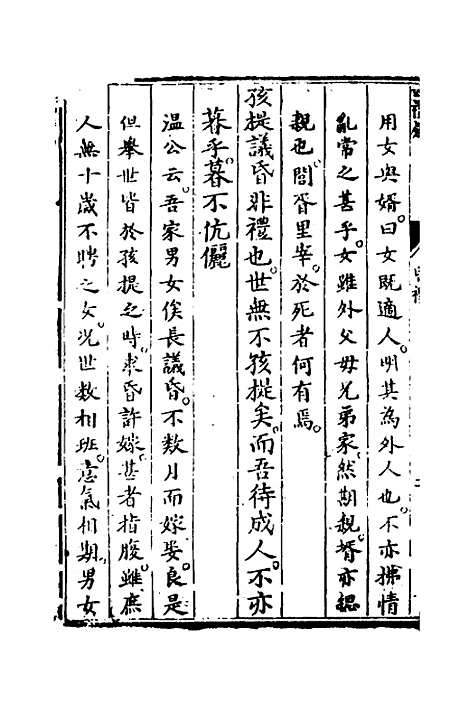 用女與婿曰女既適人明其為外人也不亦拂情
亂常之甚乎女雖外父毋兄弟家然期親婿亦緦
親也閭胥里宰於死者何有焉
孩提議昏非禮也世無不孩提矣而吾待成人不亦
暮乎暮不伉儷
温公云吾家男女俟長議昏不数月而嫁娶良是
但舉世皆於孩提之時求昏許嫁甚者指腹雖庶
人無十歲不聘之女况世数相班意氣相期男女